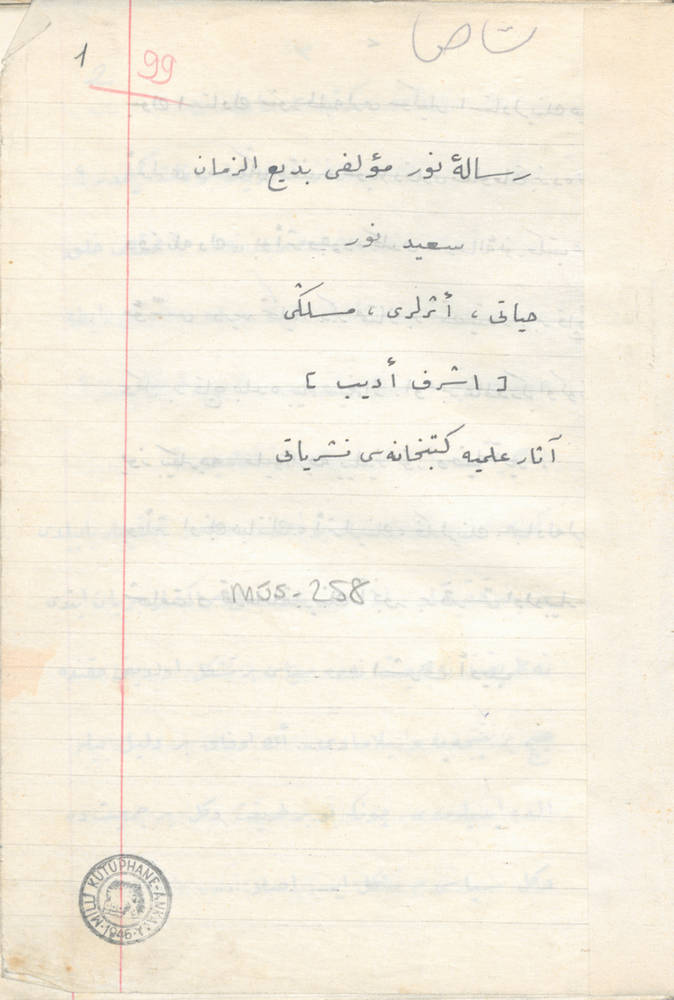 1
99
رسالهٔ نور مؤلفی بدیع الزمان
سعید نور
حیاتی ، أثرلری ، مسلکی
[ اشرف أدیب ]
آثار علمیه کتبخانه سی نشریاتی
MÜS-258
MİLLİ KÜTÜPHANE-ANKARA
1946